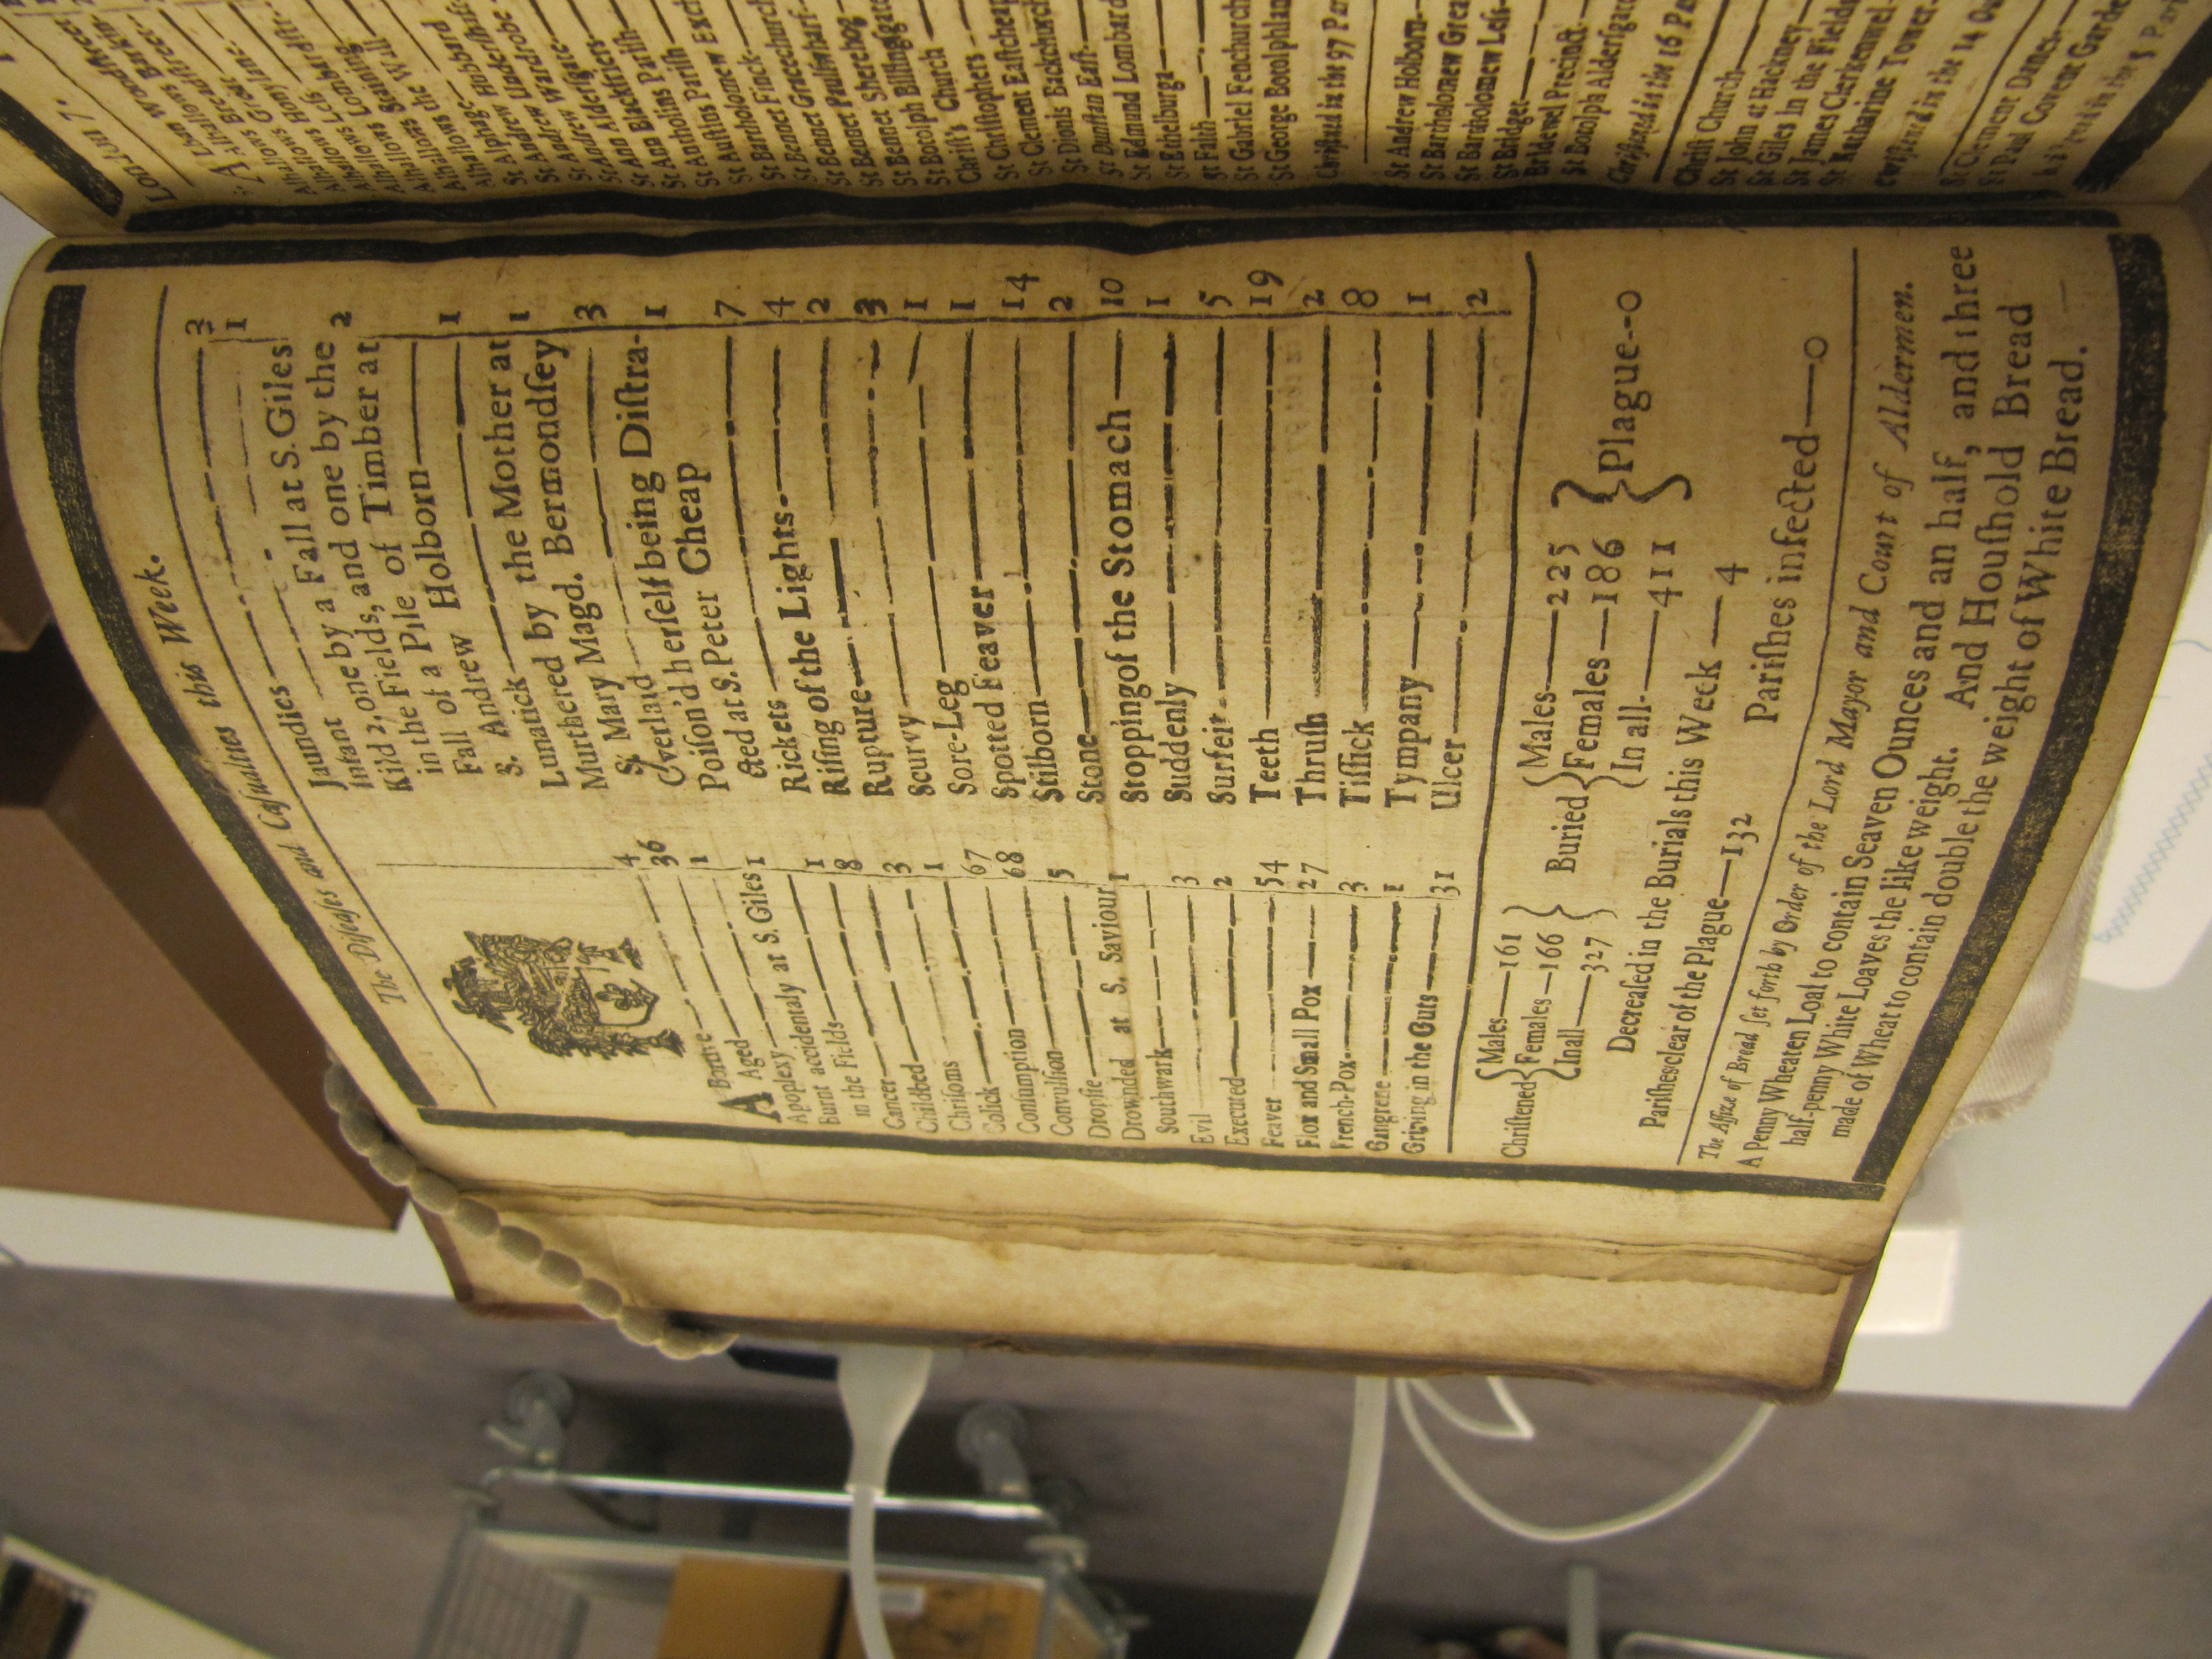 The Diſeaſes and Caſualties this Week.
ABortive — 4
Aged — 36
Apoplexy — 1
Burnt accidentaly at S. Giles
in the Fields — 1
Cancer — 1
Childbed — 8
Chriſoms — 3
Colick — 1
Conſumption — 67
Convulſion — 68
Dropſie — 5
Drownded at S. Saviour
Southwark — 1
Evil — 3
Executed — 2
Feaver — 54
Flox and Small Pox — 27
French-Pox — 3
Gangrene — 1
Griping in the Guts — 31
Jaundies — 3
Infant — 1
Kild 2, one by a Fall at S. Giles
in the Fields, and one by the
Fall of a Pile of Timber at
S. Andrew Holborn — 2
Lunatick — 1
Murthered by the Mother at
S. Mary Magd. Bermondſey 1
Overlaid — 3
Poiſon'd herſelf being Diſtra-
cted at S. Peter Cheap 1
Rickets — 7
Riſing of the Lights — 4
Rupture — 2
Scurvy — 3
Sore-Leg — 1
Spotted Feaver — 1
Stilborn — 14
Stone — 2
Stopping of the Stomach — 10
Suddenly — 1
Surfeit — 5
Teeth — 19
Thruſh — 2
Tiſſick — 8
Tympany — 1
Ulcer — 2
Chriſtened { Males — 161
Females — 166
In all — 327 }
Buried { Males — 225
Females — 186
In all — 411 } Plague -- 0
Decreaſed in the Burials this Week — 4
Pariſhes clear of the Plague — 132 Pariſhes infected — 0
The Aſſize of Bread ſet forth by Order of the Lord Mayor and Court of Aldermen.
A Penny Wheaten Loaf to contain Seaven Ounces and an half, and three
half-penny White Loaves the like weight. And Houſhold Bread
made of Wheat to contain double the weight of White Bread.
St Alphage
St Andrew Underſhaft
St Andrew Wardrobe
St Ann Alderſgate
St Ann Blackfriers
St Antholins Pariſh
St Auſtins Pariſh
St Bartholomew Exch
St Bennet Finck
St Bennet Gracechurch
St Bennet Paulſwharf
St Bennet Sherehog
St Botolph Billingſgate
Chriſt's Church
St Chriſtophers
St Clement Eaſtcheap
St Dionis Backchurch
St Dunſtan Eaſt
St Edmund Lombard
St Ethelburga
St Faith
St Gabriel Fenchurch
St George Botolphlan
Chriſtned in the 97 Pa
St Andrew Holborn
St Bartholomew Grea
St Bartholomew Leſ
St Bridget
Bridewel Precinct
St Botolph Alderſgat
Chriſtned in the 16 Pa
Chriſt Church
St John at Hackney
St Giles in the Fields
St James Clerkenwel
St Katharine Tower
Chriſtned in the 14 Ou
St Clement Danes
St Paul Covent Garde